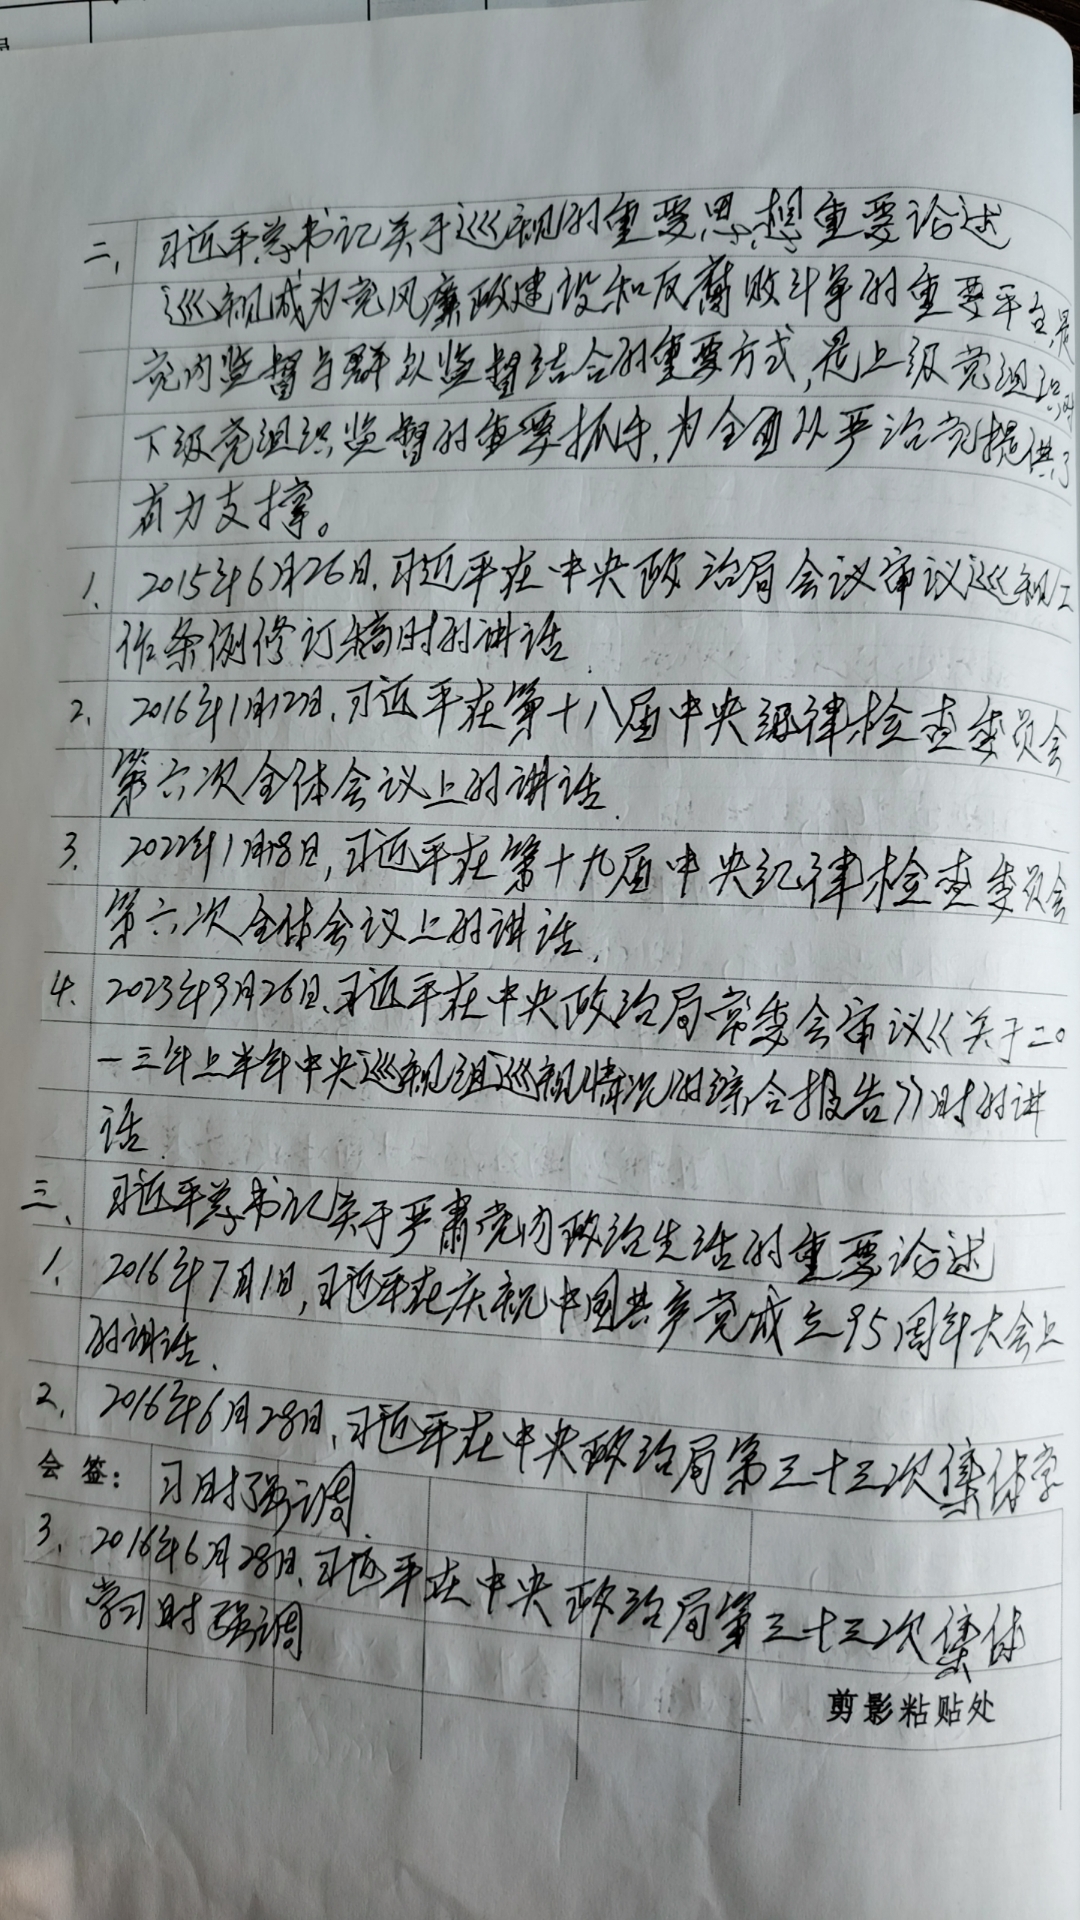 二、习近平总书记关于巡视的重要思想重要论述
巡视成为党风廉政建设和反腐败斗争的重要平台,是
党内监督与群众监督结合的重要方式,是上级党组织对
下级党组织监督的重要抓手,为全面从严治党提供了
有力支撑。
1. 2015年6月26日,习近平在中央政治局会议审议巡视工
作条例修订稿时的讲话.
2. 2016年1月12日,习近平在第十八届中央纪律检查委员会
第六次全体会议上的讲话.
3. 2022年1月18日,习近平在第十九届中央纪律检查委员会
第六次全体会议上的讲话.
4. 2023年9月26日,习近平在中央政治局常委会审议《关于二〇
一三年上半年中央巡视组巡视情况的综合报告》时的讲
话.
三、习近平总书记关于严肃党内政治生活的重要论述
1. 2016年7月1日,习近平在庆祝中国共产党成立95周年大会上
的讲话.
2. 2016年6月28日,习近平在中央政治局第三十三次集体学
会签: 习时强调.
3. 2016年6月28日,习近平在中央政治局第三十三次集体
学习时强调
剪影粘贴处